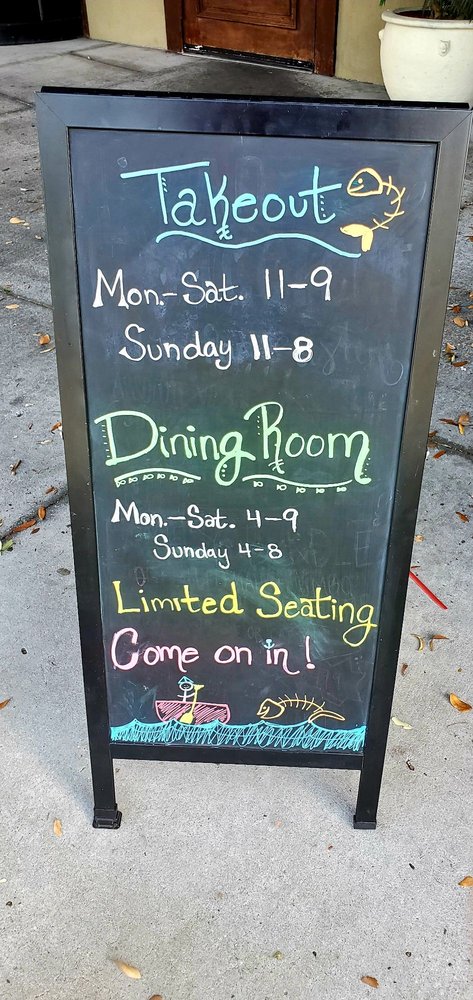 Takeout
Mon.-Sat. 11-9
Sunday 11-8
Dining Room
Mon.-Sat. 4-9
Sunday 4-8
Limited Seating
Come on in!